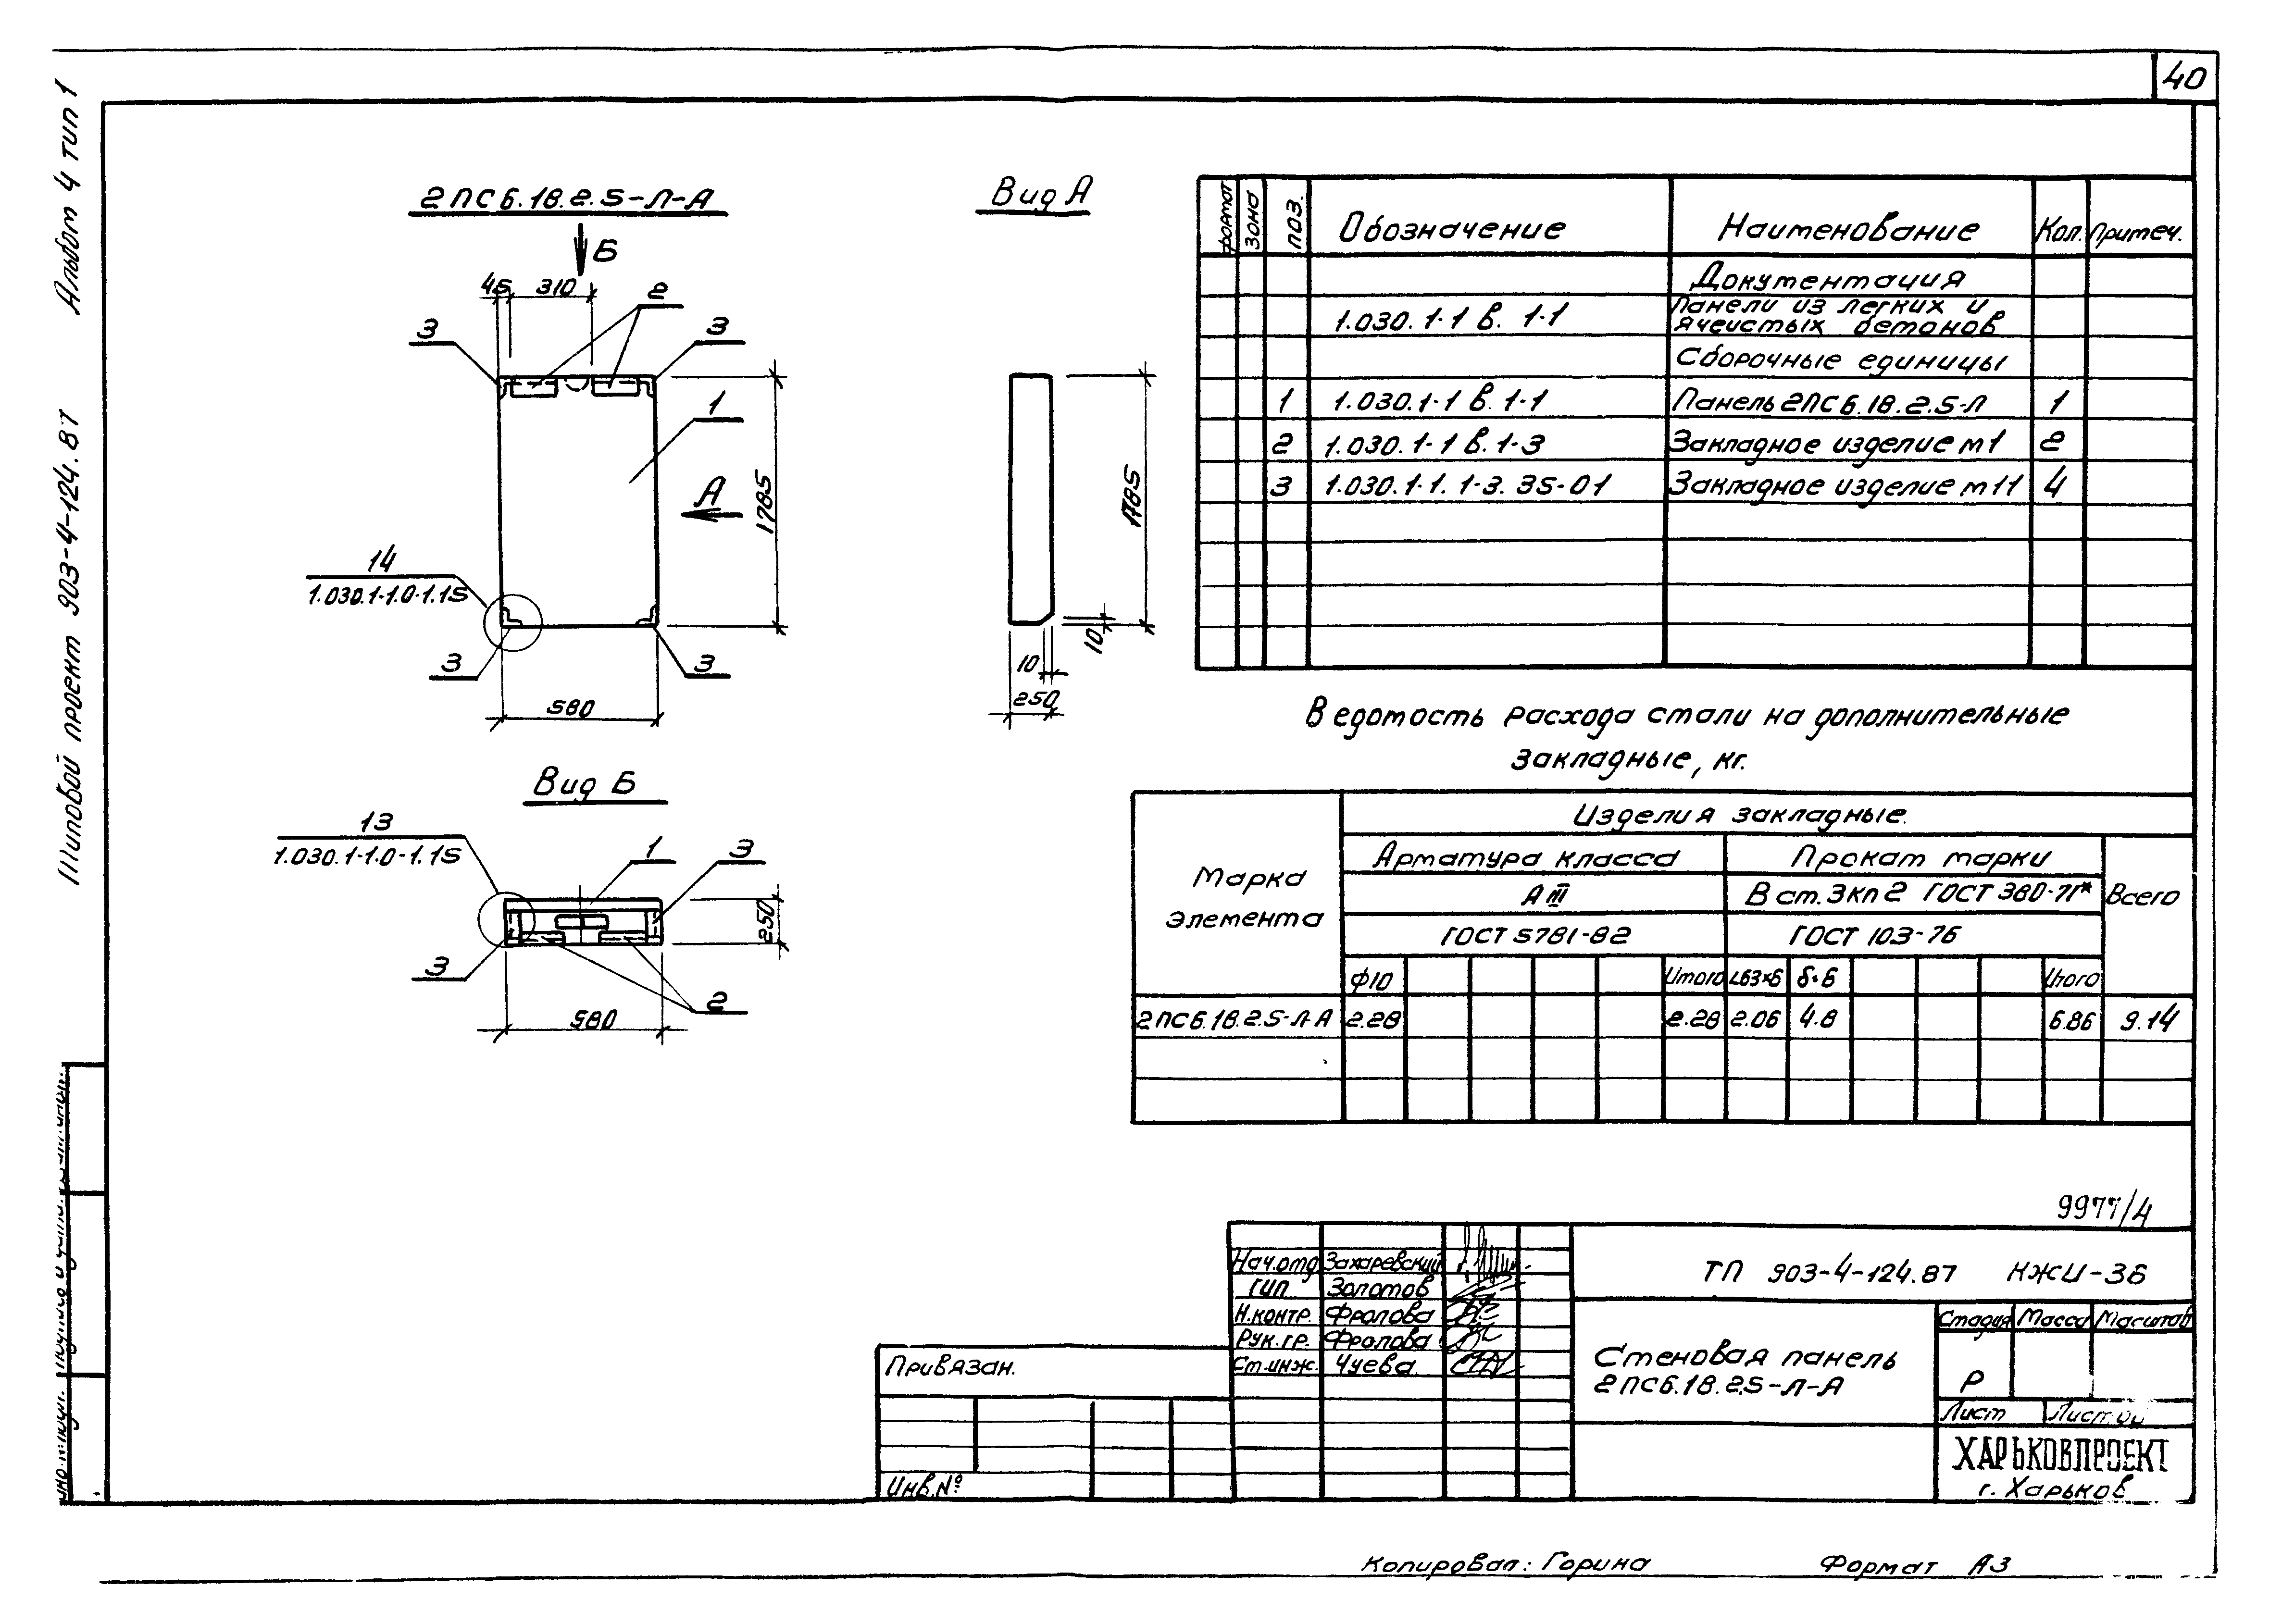 40
Альбом 4 тип 1
Типовой проект 903-4-124.87
2ПС6.18.2.5-Л-А
Б
45 310 2
3 3
1
А
1785
14
1.030.1-1.0-1.15
3 3
580
Вид А
1785
10
10
250
Вид Б
13
1.030.1-1.0-1.15
1 3
250
3
2
580
Формат Зона Поз. Обозначение Наименование Кол. Примеч.
Документация
1.030.1-1 в. 1-1 Панели из легких и
ячеистых бетонов
Сборочные единицы
1 1.030.1-1 в. 1-1 Панель 2ПС6.18.2.5-Л 1
2 1.030.1-1 в. 1-3 Закладное изделие м1 2
3 1.030.1-1. 1-3. 35-01 Закладное изделие м11 4
Ведомость расхода стали на дополнительные
закладные, кг.
Марка
элемента
Изделия закладные.
Арматура класса Прокат марки
А III В ст. 3кп2 ГОСТ 380-71* Всего
ГОСТ 5781-82 ГОСТ 103-76
ф10 Итого L63×6 δ=6 Итого
2ПС6.18.2.5-Л-А 2.28 2.28 2.06 4.8 6.86 9.14
9977/4
Нач.отд Захаревский
ГИП Золотов
Н.контр. Фролова
Рук. гр. Фролова
Ст.инж. Чуева.
ТП 903-4-124.87 КЖИ-36
Стеновая панель
2ПС6.18.2.5-Л-А
Стадия Масса Масштаб
Р
Лист
ХАРЬКОВПРОЕКТ
г. Харьков
Привязан.
Инв.№
Копировал: Горина Формат А3